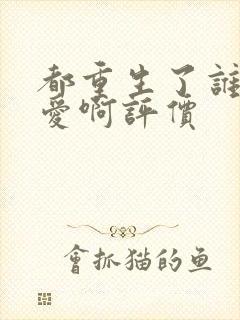 都重生了誰
愛啊評價
會抓猫的鱼